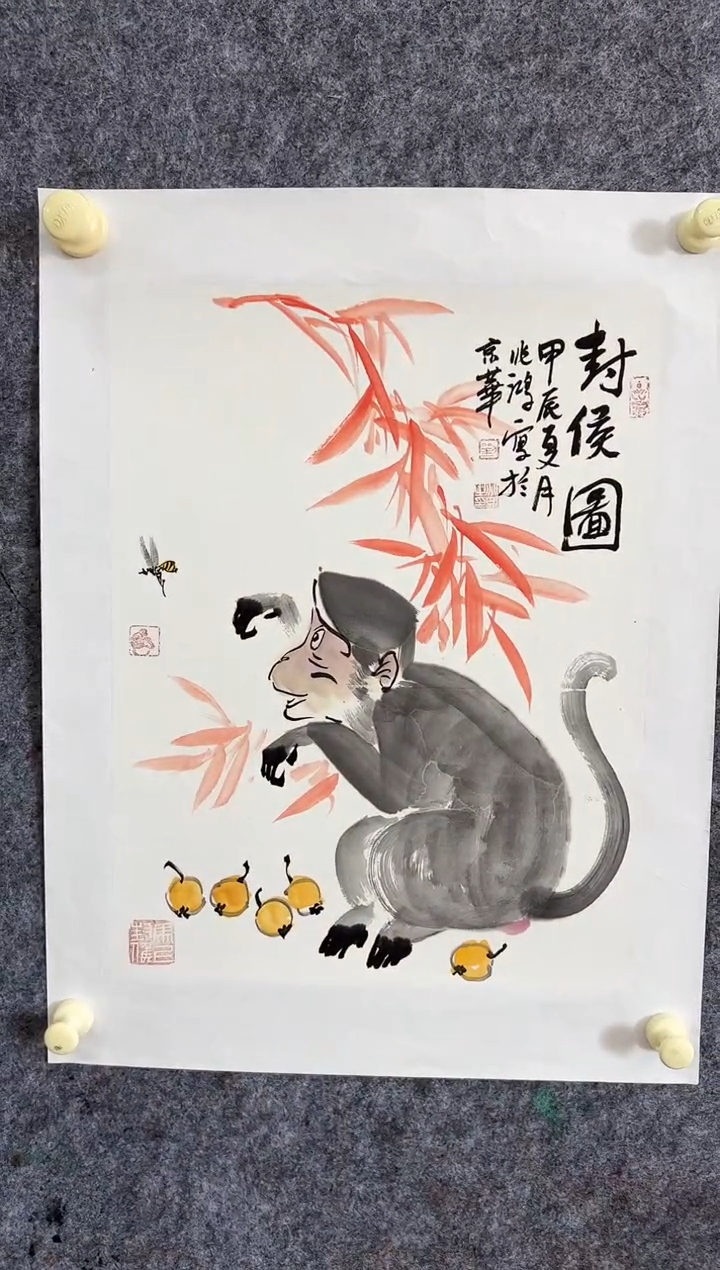 封侯圖
甲辰夏月
兆鴻寫於
京華